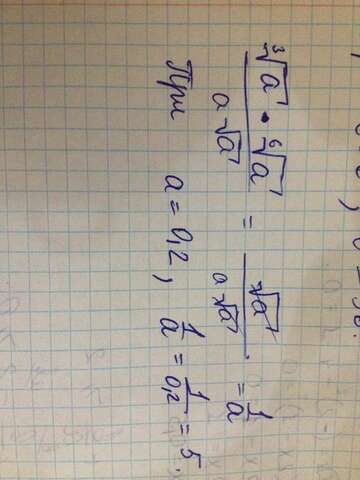 ∛a · ⁶√a / a√a = √a / a√a = 1/a
При a = 0,2, 1/a = 1/0,2 = 5.